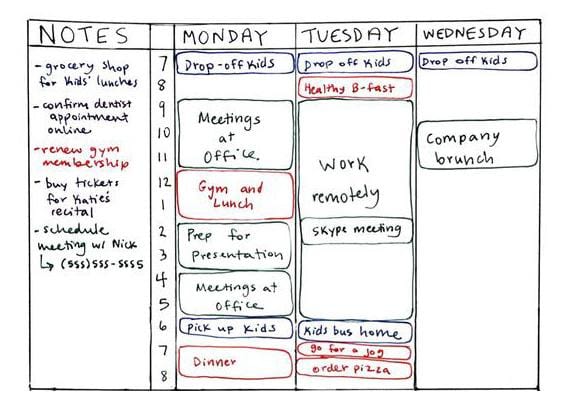 NOTES
- grocery shop
for kids' lunches
- confirm dentist
appointment
online
- renew gym
membership
- buy tickets
for Katie's
recital
- schedule
meeting w/ Nick
↳ (555)555-5555
7
8
9
10
11
12
1
2
3
4
5
6
7
8
MONDAY
Drop-off Kids
Meetings
at
Office.
Gym and
Lunch
Prep for
Presentation
Meetings at
office
Pick up Kids
Dinner
TUESDAY
Drop off Kids
Healthy B-fast
Work
remotely
Skype meeting
Kids bus home
go for a jog
order pizza
WEDNESDAY
Drop off Kids
Company
brunch